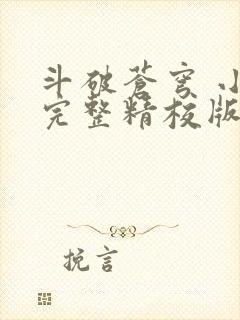 斗破苍穹 小
完整精校版
挽言